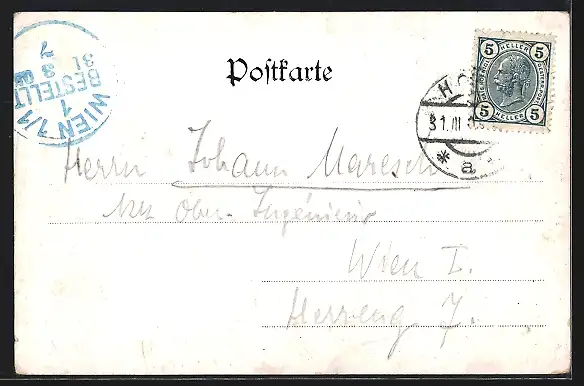 Postkarte
5 HELLER 5
5 HELLER 5
WIEN 1/1
BESTELLT
1
31 3
7
31.III
* a *
Herrn Johann Maresch
Ober-Ingenieur
Wien I.
Herreng 7.